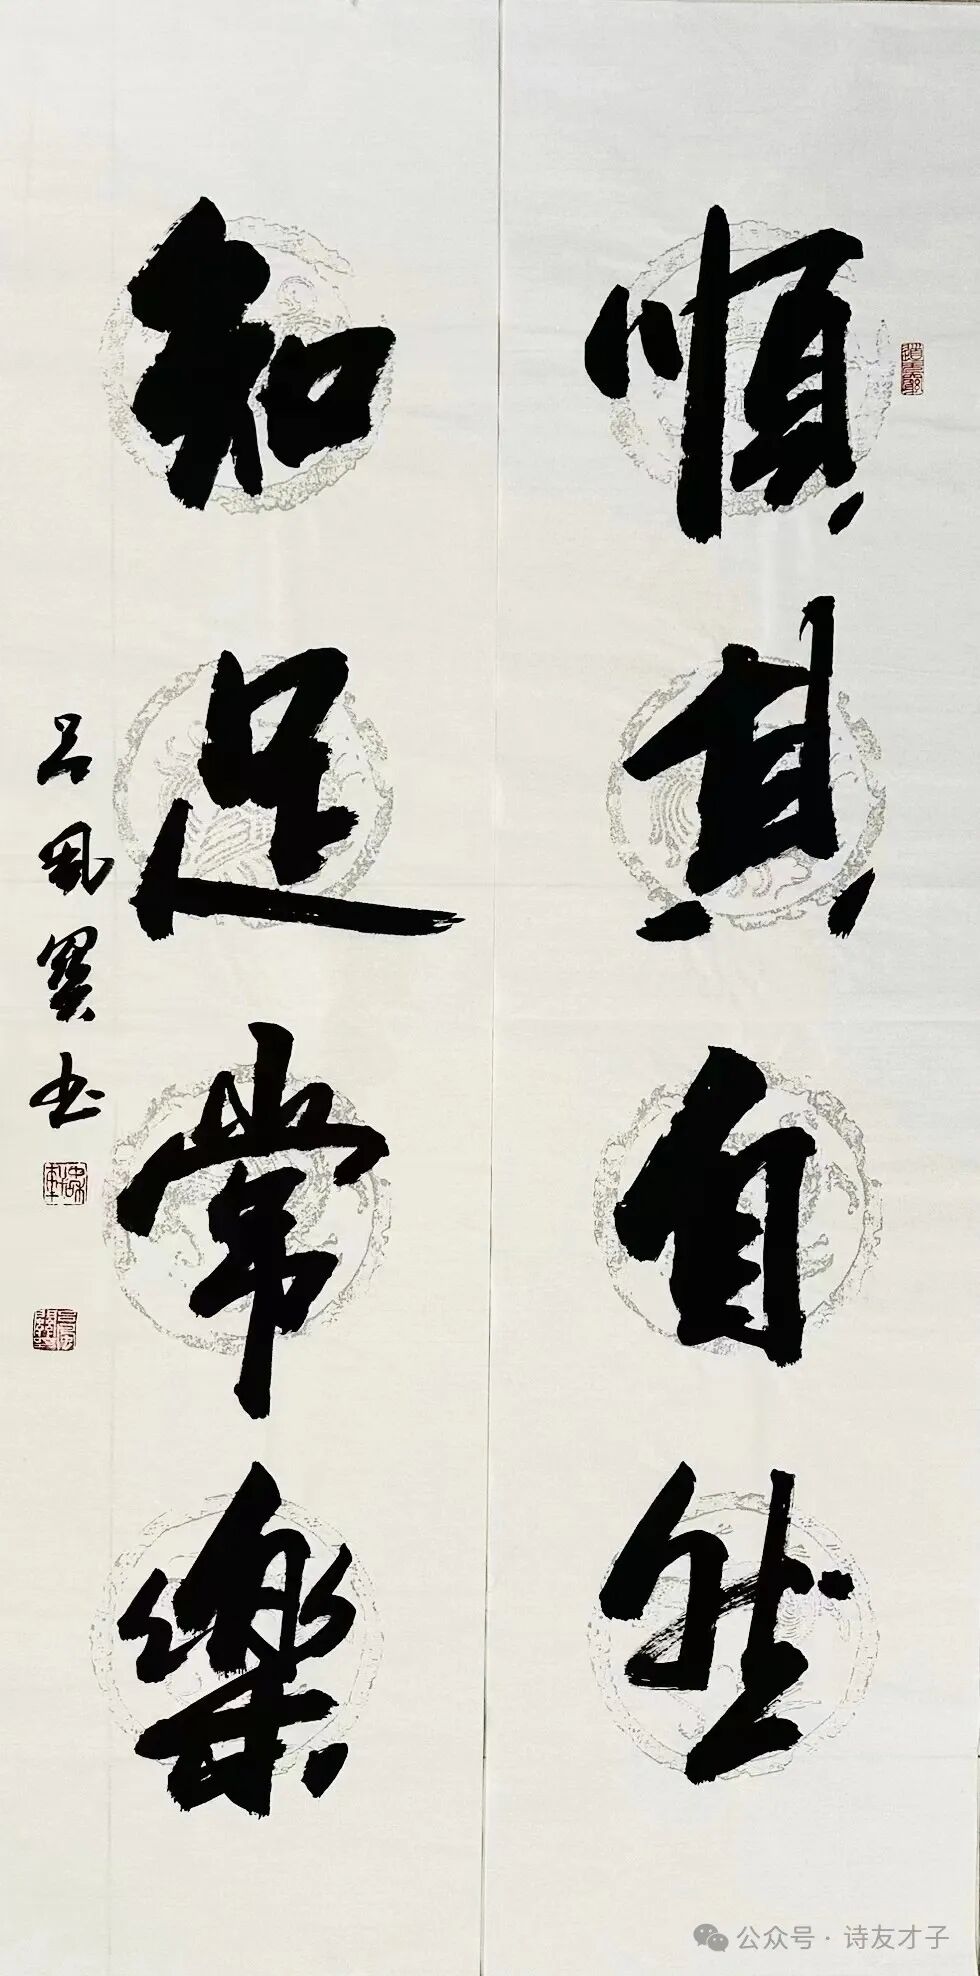 順其自然
知足常樂
吕凤翼书
公众号·诗友才子